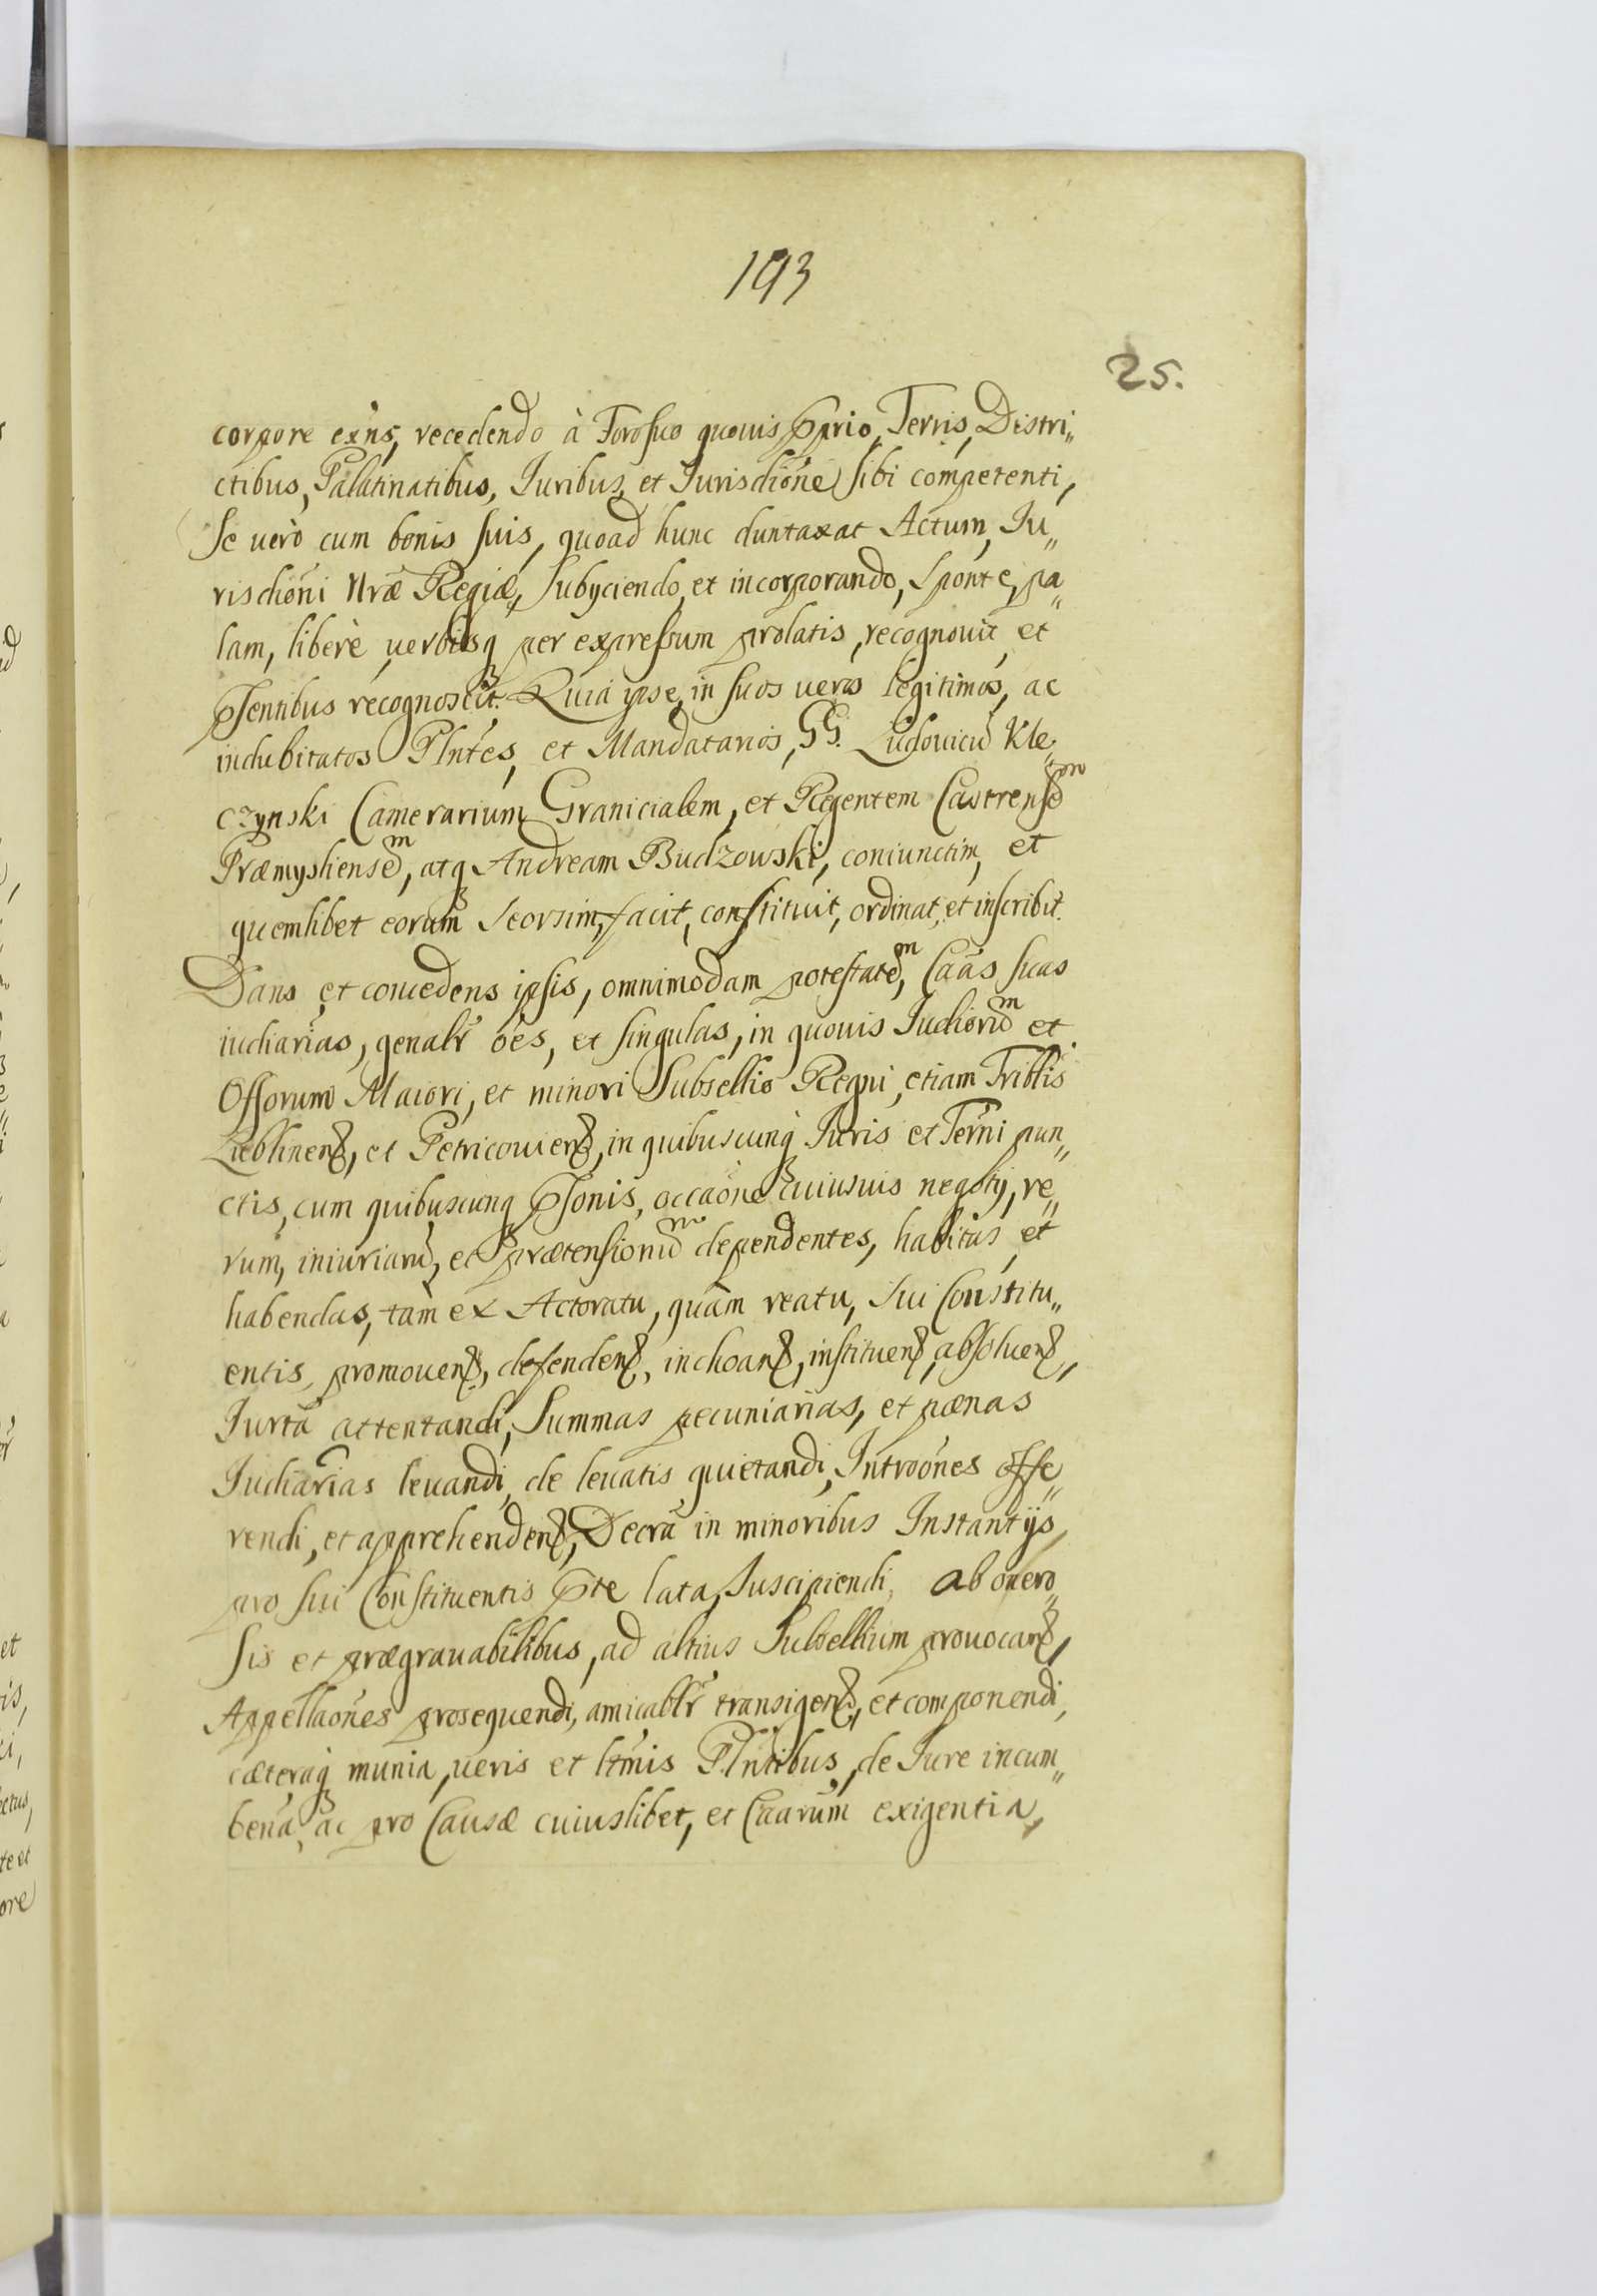 193
25.
corpore exns, recedendo à Foro suo quovis pprio, Terris, Distri„
ctibus, Palatinatibus, Iuribus, et Iurisdione sibi competenti,
Se verò cum bonis suis, quoad hunc duntaxat Actum, Iu„
risdioni Nræ Regiæ, subyciendo, et incorporando, sponte, pa„
lam, liberè, verbisq per expressum prolatis, recognovit, et
psentibus recognoscit. Quia ipse, in suos veros legitimos, ac
indubitatos Plntes, et Mandatarios, GG. Ludovicu Kle„
czynski Camerarium Granicialem, et Regentem Castrensem
Præmysliensem, atq Andream Budzowski, coniunctim, et
quemlibet eorum seorsim, facit, constituit, ordinat, et inscribit.
Dans et concedens ipsis, omnimodam potestatem, Caas suas
iudiarias, genalr oes, et singulas, in quovis Iudiorum et
Offorum Maiori, et minori Subsellio Regni, etiam Tribblis
Lublinen, et Petricovien, in quibuscunq Iuris et Terni pun„
ctis, cum quibuscunq psonis, occaone cuiusvis negotij, re„
rum, iniuriaru, et prætensionum dependentes, habitas, et
habendas, tàm ex Actoratu, quàm reatu, sui Constitu„
entis, promoven, defenden, inchoan, instituen, absolven,
Iurta attentandi, Summas pecuniarias, et pænas
Iudiarias levandi, de levatis quietandi, Introones offe„
rendi, et apprehenden, Decra in minoribus Instantijs,
pro sui Constituentis pte lata, suscipiendi, ab onero„
sis et prægravabilibus, ad altius Subsellium provocan,
Appellaones prosequendi, amicablr transigen, et componendi,
cæteraq munia, veris et ltmis Plntibus, de Iure incum„
bena, ac pro Causæ cuiuslibet, et Caarum exigentia,